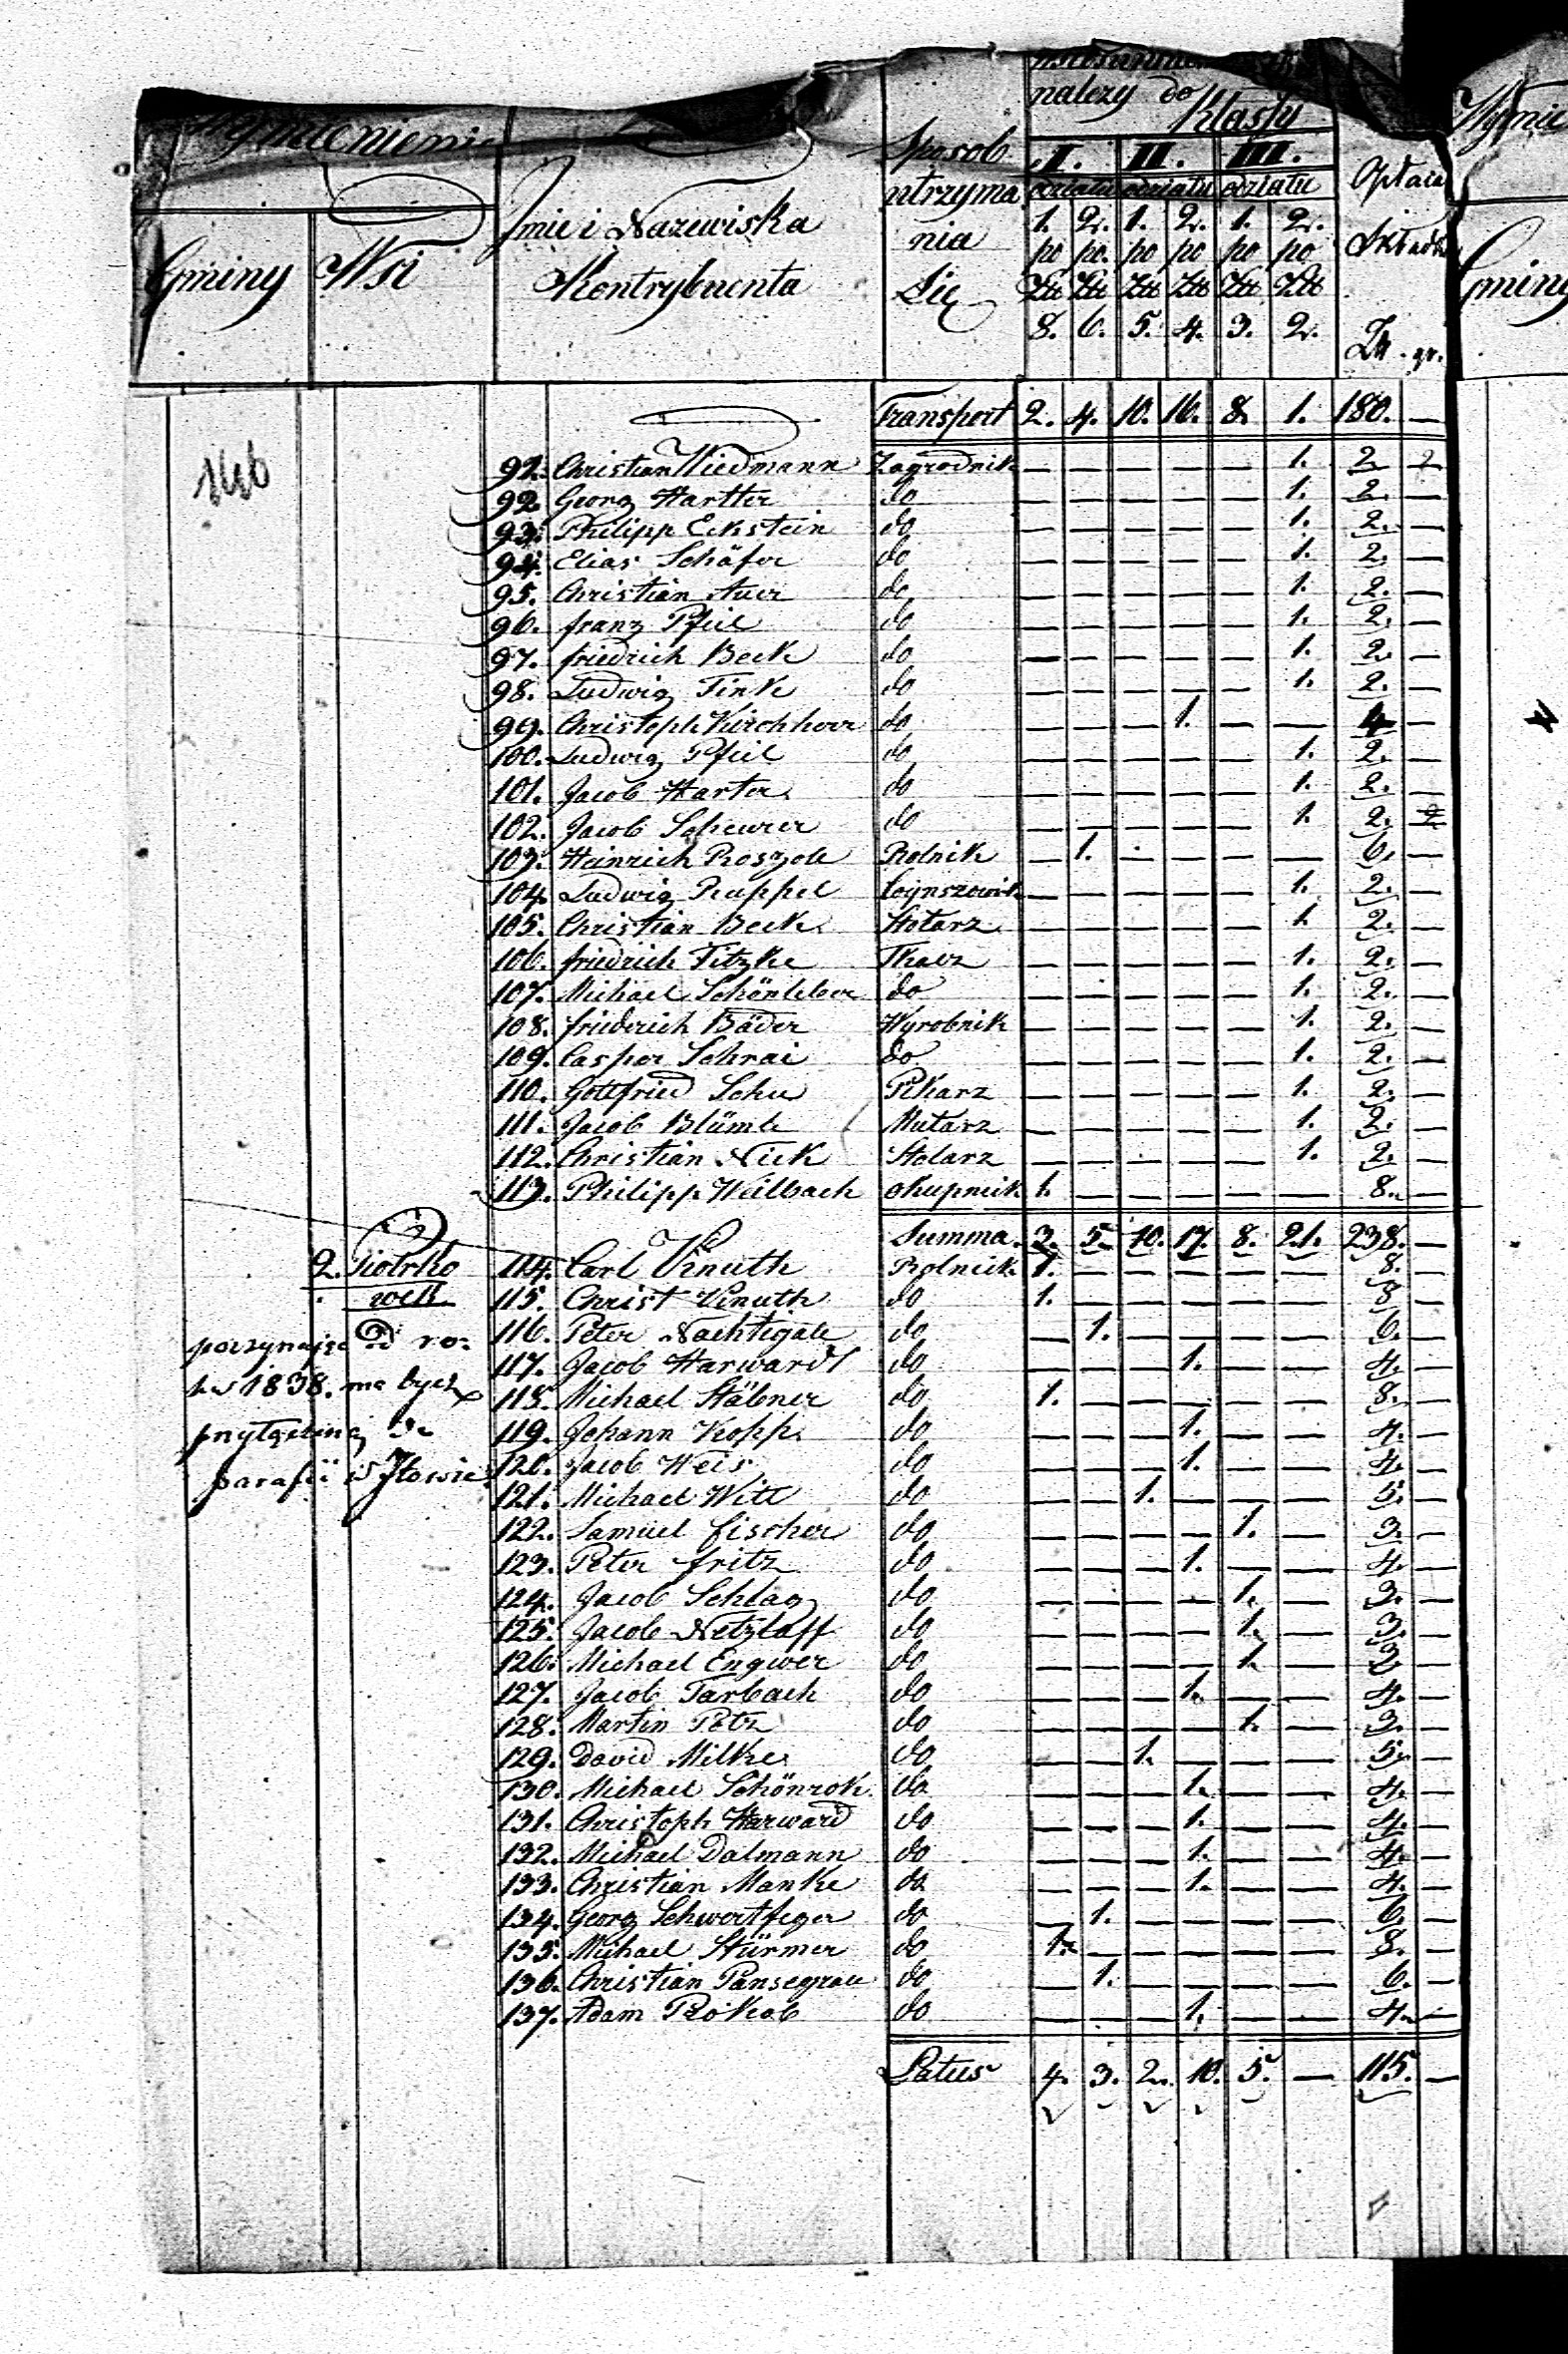 należy do Klasy
Gminy Wsi
Imie i Nazewiska
Kontrybuenta
Sposob
utrzyma
nia
Się
I. II. III.
odziału odziału odziału
1. 2. 1. 2. 1. 2.
po po. po po po po
Złt Złt Złt Złt Złt Złt
8. 6. 5. 4. 3. 2.
Opłaca
Składki
Zł. gr.
Gminy
146
Transport 2. 4. 10. 16. 8. 1. 180. —
92. Christian Wiedmann Zagrodnik — — — — — 1. 2
92. Georg Hartter do — — — — — 1. 2. —
93. Philipp Eckstein do — — — — — 1. 2. —
94. Elias Schäfer do — — — — — 1. 2. —
95. Christian Auer do — — — — — 1. 2. —
96. Franz Pfeil do — — — — — 1. 2. —
97. Friedrich Beck do — — — — — 1. 2. —
98. Ludwig Fink do — — — — — 1. 2. —
99. Christoph Kirchherr do — — — 1. — — 4 —
100. Ludwig Pfeil do — — — — — 1. 2. —
101. Jacob Harter do — — — — — 1. 2. —
102. Jacob Scheurer do — — — — — 1. 2.
103. Heinrich Roszole Rolnik — 1. — — — — 6. —
104. Ludwig Ruppel Czynszownik — — — — — 1. 2. —
105. Christian Beck Stolarz — — — — — 1. 2. —
106. Friedrich Fitzke Tkacz — — — — — 1. 2. —
107. Michael Schönleber do — — — — — 1. 2. —
108. Friederich Bäder Wyrobnik — — — — — 1. 2. —
109. Casper Schrai do — — — — — 1. 2. —
110. Gottfried Schu Pikarz — — — — — 1. 2. —
111. Jacob Blümle Mularz — — — — — 1. 2. —
112. Christian Nick Stolarz — — — — — 1. 2. —
113. Philipp Weilbach okupnik 1. — — — — — 8. —
Summa. 3. 5. 10. 17. 8. 21. 238. —
2. Piotrko
wek
114. Carl Knuth Rolnick 1. — — — — — 8. —
115. Christ Knuth do 1. — — — — — 8 —
116. Peter Nachtigale do — 1. — — — — 6. —
117. Jacob Harwardt do — — — 1. — — 4. —
118. Michael Stäbner do 1. — — — — — 8. —
119. Johann Kopp do — — — 1. — — 4. —
120. Jacob Weis do — — — 1. — — 4. —
121. Michael Witt do — — 1. — — — 5. —
122. Samuel Fischer do — — — — 1. — 3. —
123. Peter Fritz do — — — 1. — — 4. —
124. Jacob Schlag do — — — — 1. — 3. —
125. Jacob Netzlaff do — — — — 1. — 3. —
126. Michael Engwer do — — — — 1. — 3 —
127. Jacob Tarbach do — — — 1. — — 4. —
128. Martin Petz do — — — — 1. — 3. —
129. David Milke do — — 1. — — — 5. —
130. Michael Schönrok do — — — 1. — — 4. —
131. Christoph Harward do — — — 1. — — 4. —
132. Michael Dalmann do — — — 1. — — 4. —
133. Christian Manke do — — — 1. — — 4. —
134. Georg Schwertfeger do — 1. — — — — 6. —
135. Michael Stürmer do 1. — — — — — 8. —
136. Christian Pansegrau do — 1. — — — — 6. —
137. Adam Rokob do — — — 1. — — 4. —
poczynając od ro:
ku 1838. ma bydz
przyłącziną do
parafii w Iłowie.
Latus 4. 3. 2. 10. 5. — 115. —